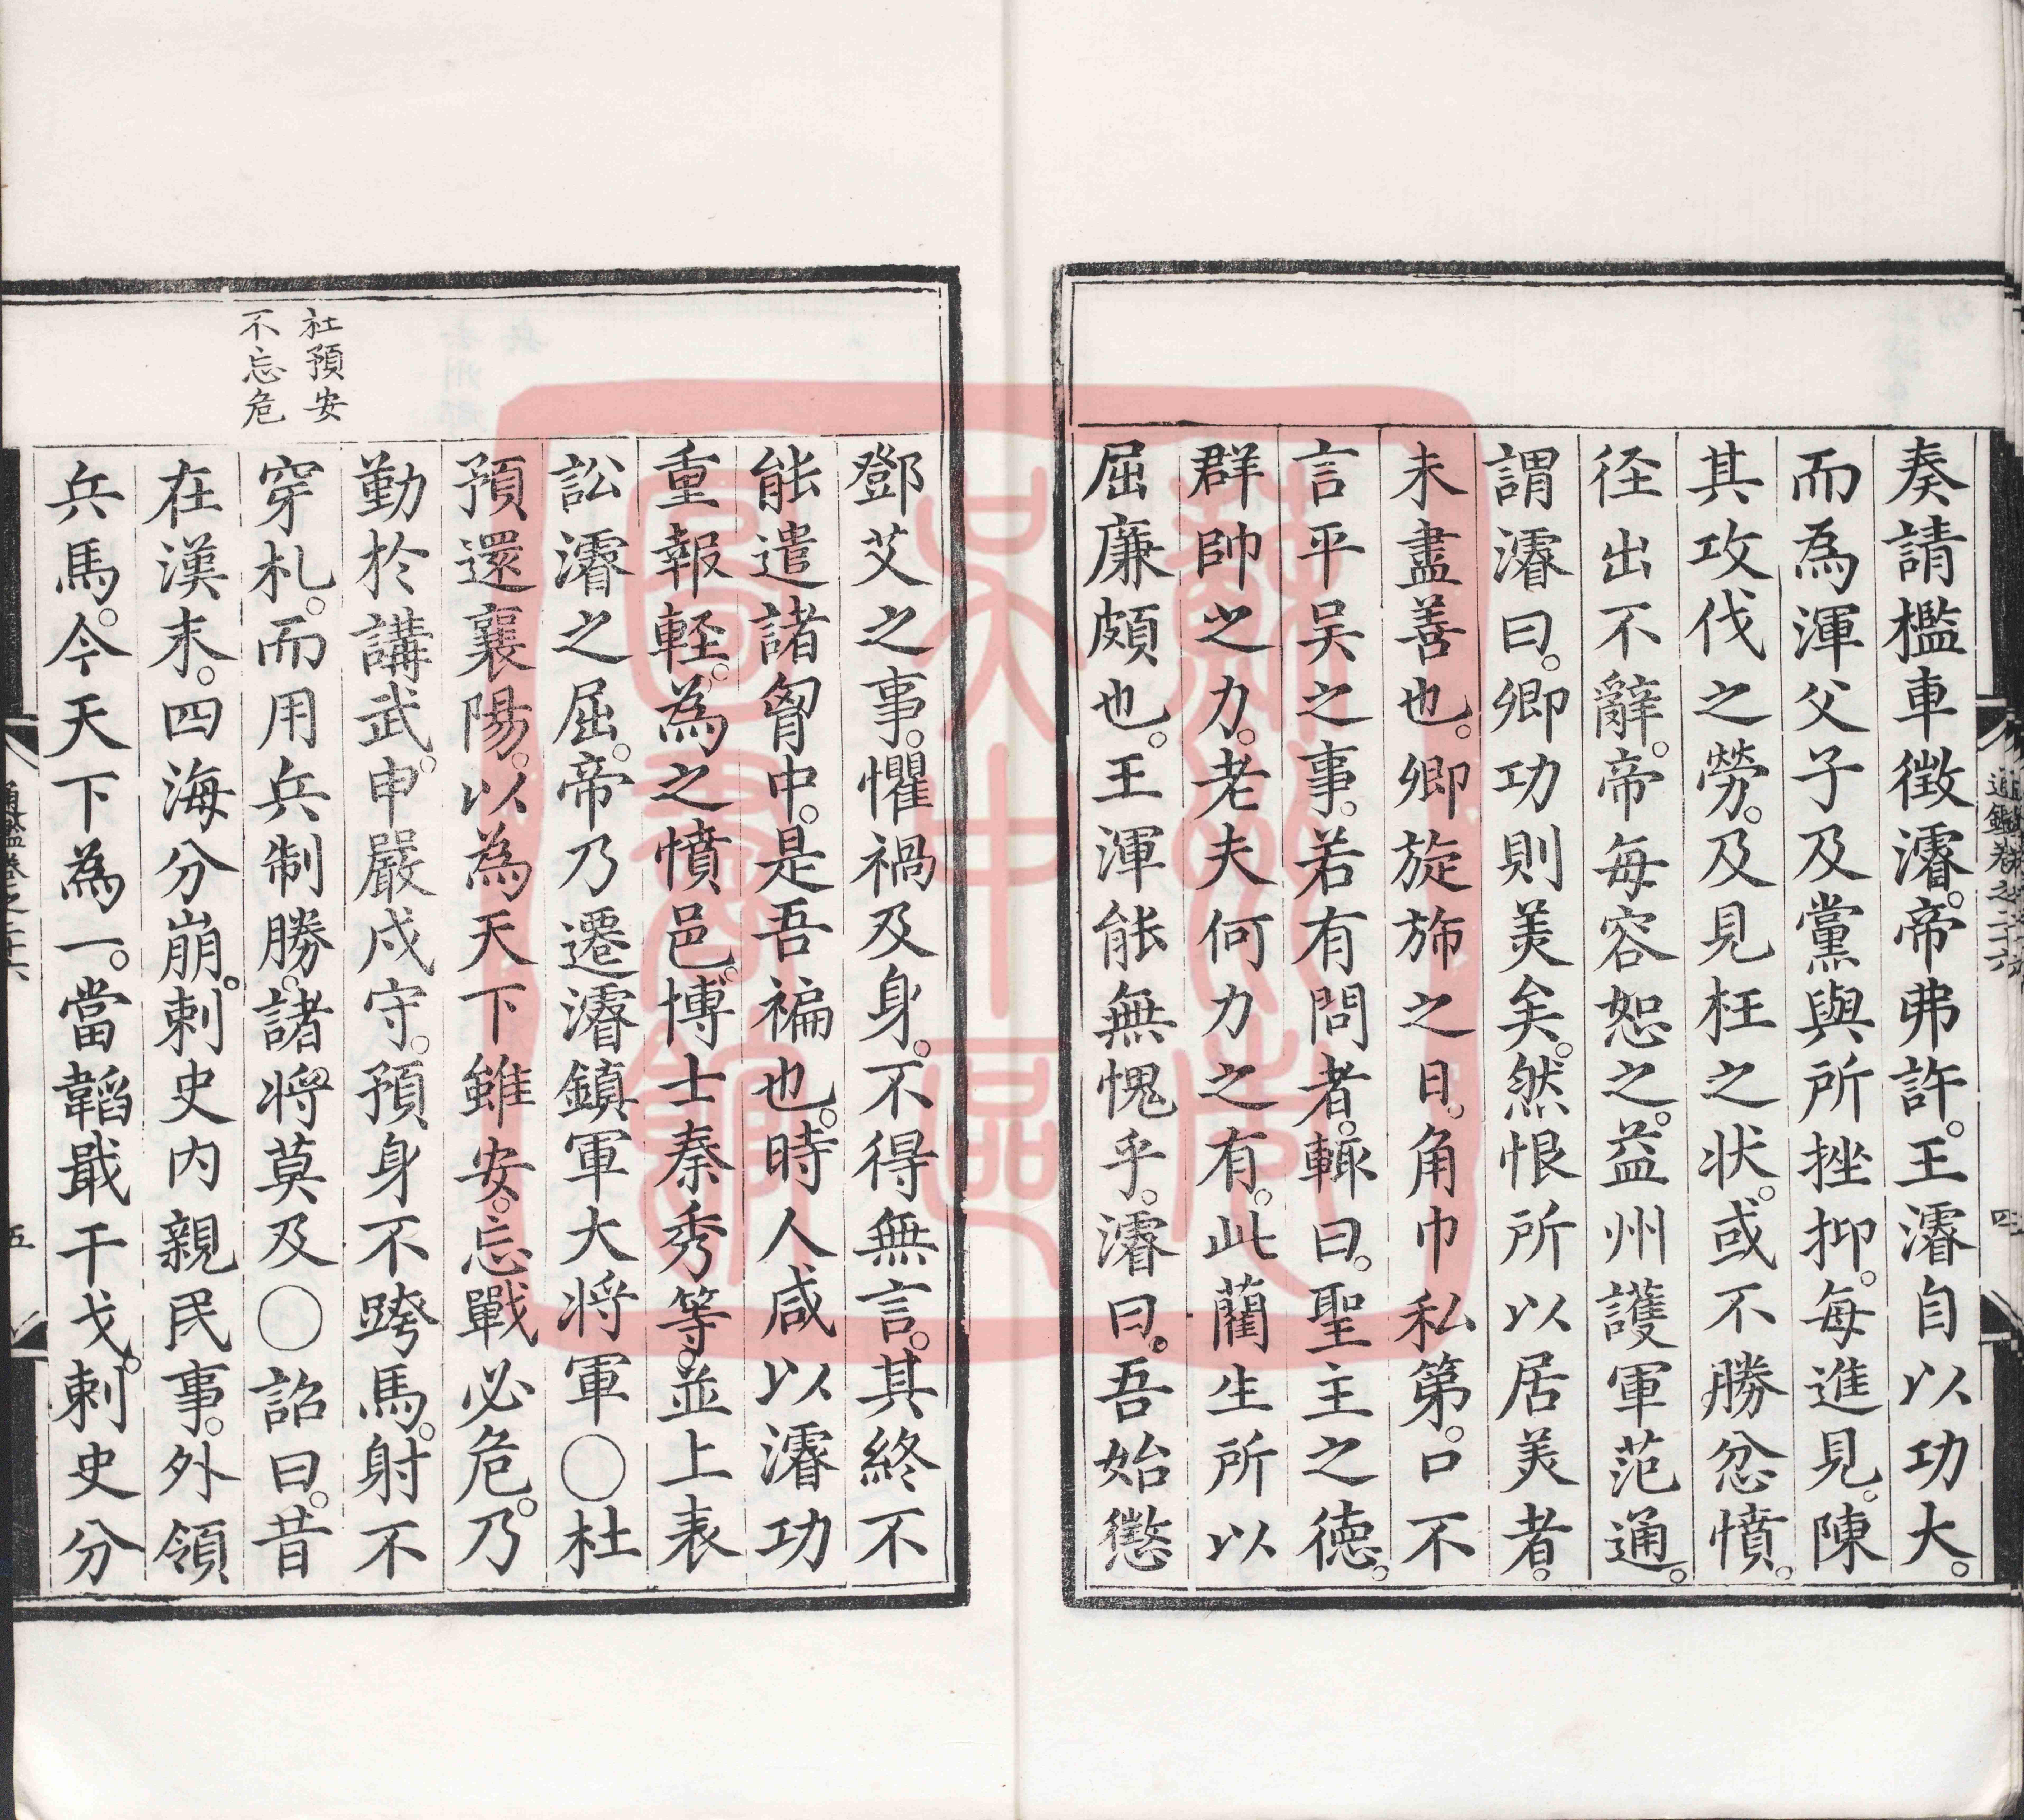 奏請檻車徵濬。帝弗許。王濬自以功大。
而為渾父子及黨與所挫抑。每進見。陳
其攻伐之勞。及見枉之狀。或不勝忿憤。
径出不辭。帝每容恕之。益州護軍范通。
謂濬曰。卿功則美矣。然恨所以居美者。
未盡善也。卿旋斾之日。角巾私第。口不
言平吴之事。若有問者。輙曰。聖主之德。
群帥之力。老夫何力之有。此藺生所以
屈廉頗也。王渾能無愧乎。濬曰。吾始懲
通鑑卷之二十六
四
鄧艾之事。懼禍及身。不得無言。其終不
能遣諸胷中。是吾褊也。時人咸以濬功
重報輕。為之憤邑。博士秦秀等。並上表
訟濬之屈。帝乃遷濬鎮軍大将軍〇杜
預還襄陽。以為天下雖安。忘戰必危。乃
社預安
不忘危
勤於講武。申嚴戍守。預身不跨馬。射不
穿札。而用兵制勝。諸将莫及〇詔曰。昔
在漢末。四海分崩。刺史内親民事。外領
兵馬。今天下為一。當韜戢干戈。刺史分
通鑑卷之二十六
五
蘇州市
吴中區
圖書館